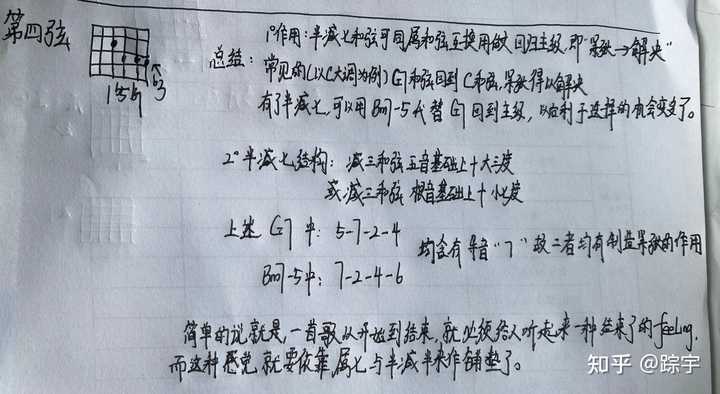 第四弦
1 5 b7 b3
总结:
1°作用:半减七和弦可同属和弦互换用做回归主级,即"紧张→解决"
常见的(以C大调为例)G7和弦回到C和弦,紧张得以解决
有了半减七,可以用Bm7-5代替G7回到主级,以后利于选择的机会变多了。
2°半减七结构:减三和弦五音基础上+大三度
或减三和弦根音基础上+小七度
上述 G7 中: 5-7-2-4
Bm7-5中: 7-2-4-6
均含有导音"7"故二者均有制造紧张的作用
简单的说就是,一首歌从开始到结束,就必须给人听起来一种结束了的feeling,
而这种感觉就要依靠属七与半减七来作铺垫了。
知乎 @踪宇